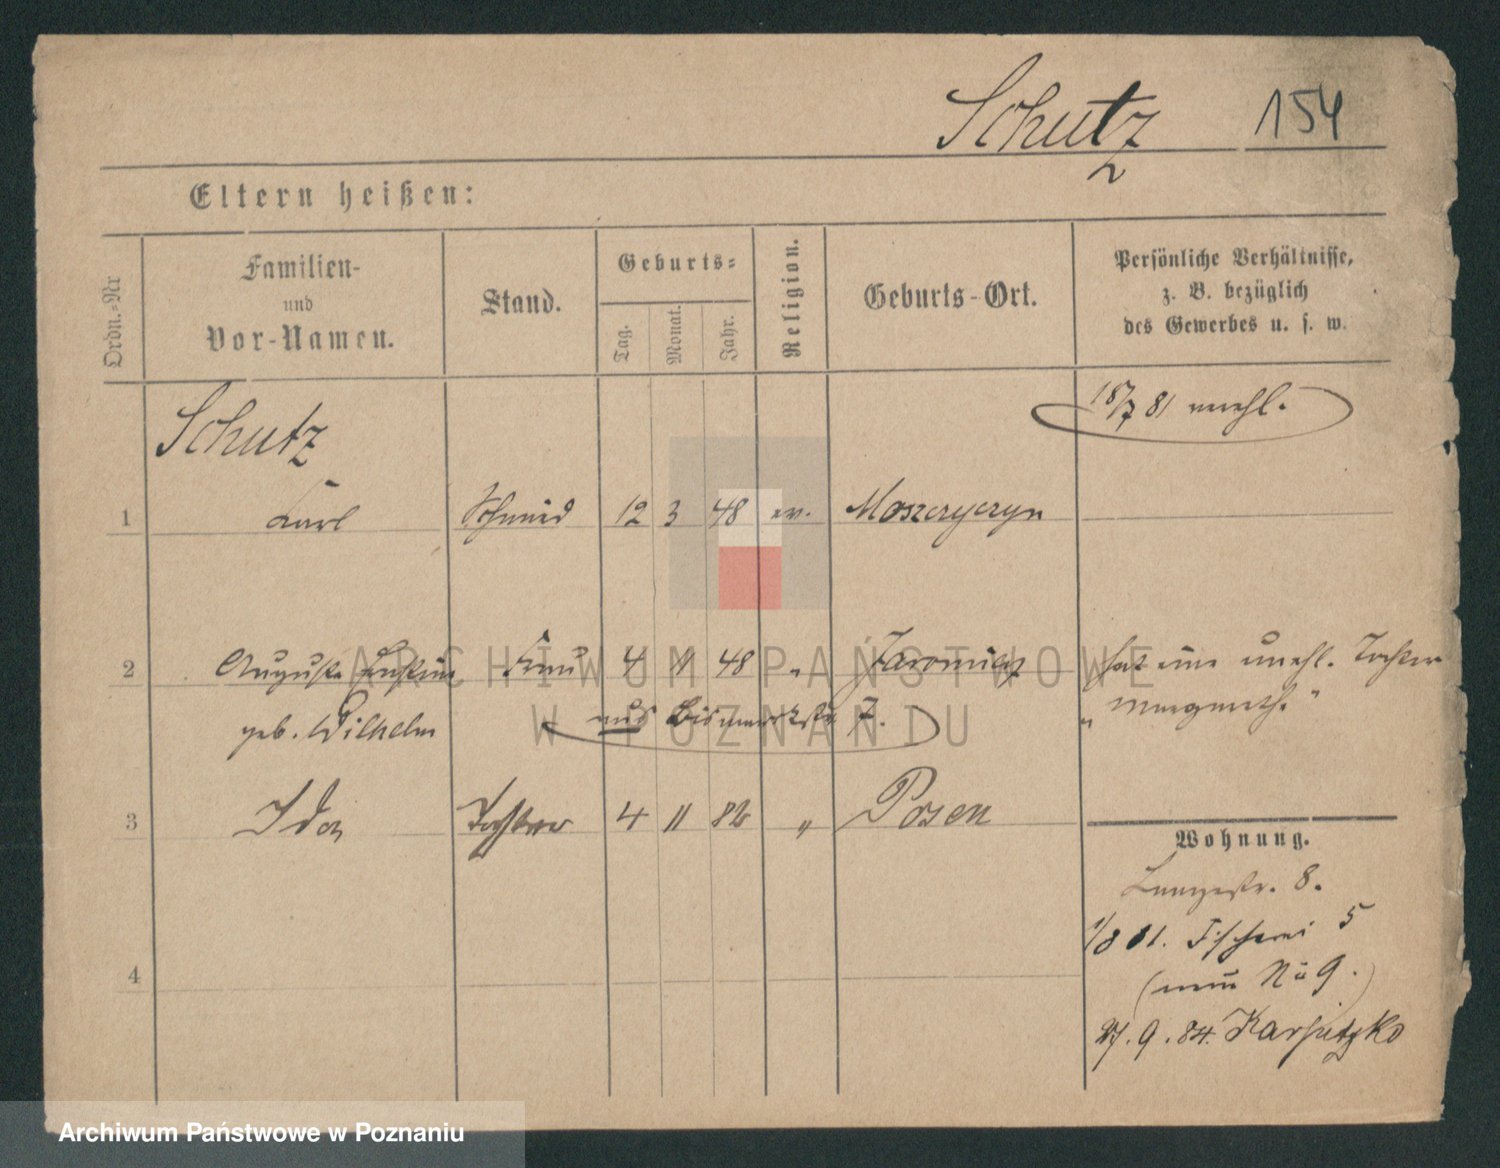 Schutz 154
Eltern heißen:
Ordn.-Nr
Familien-
und
Vor-Namen.
Stand.
Geburts-
Tag.
Monat.
Jahr.
Religion.
Geburts-Ort.
Persönliche Verhältnisse,
z. B. bezüglich
des Gewerbes u. s. w.
18/7 81 verehl.
Schutz
1 Karl Schmied 12 3 48 ev. Moszczyczyn
2 Auguste Frau 4 11 48 " hat eine unehl. Tochter
geb. Wilhelm aus Bismarckstr. 7. " Margareth. "
3 Ida Tochter 4 11 82 " Posen
Wohnung.
Langestr. 8.
1/8 81. Fischerei 5
4
(neue No 9.)
27. 9. 84.
ARCHIWUM PAŃSTWOWE
W POZNANIU
Archiwum Państwowe w Poznaniu